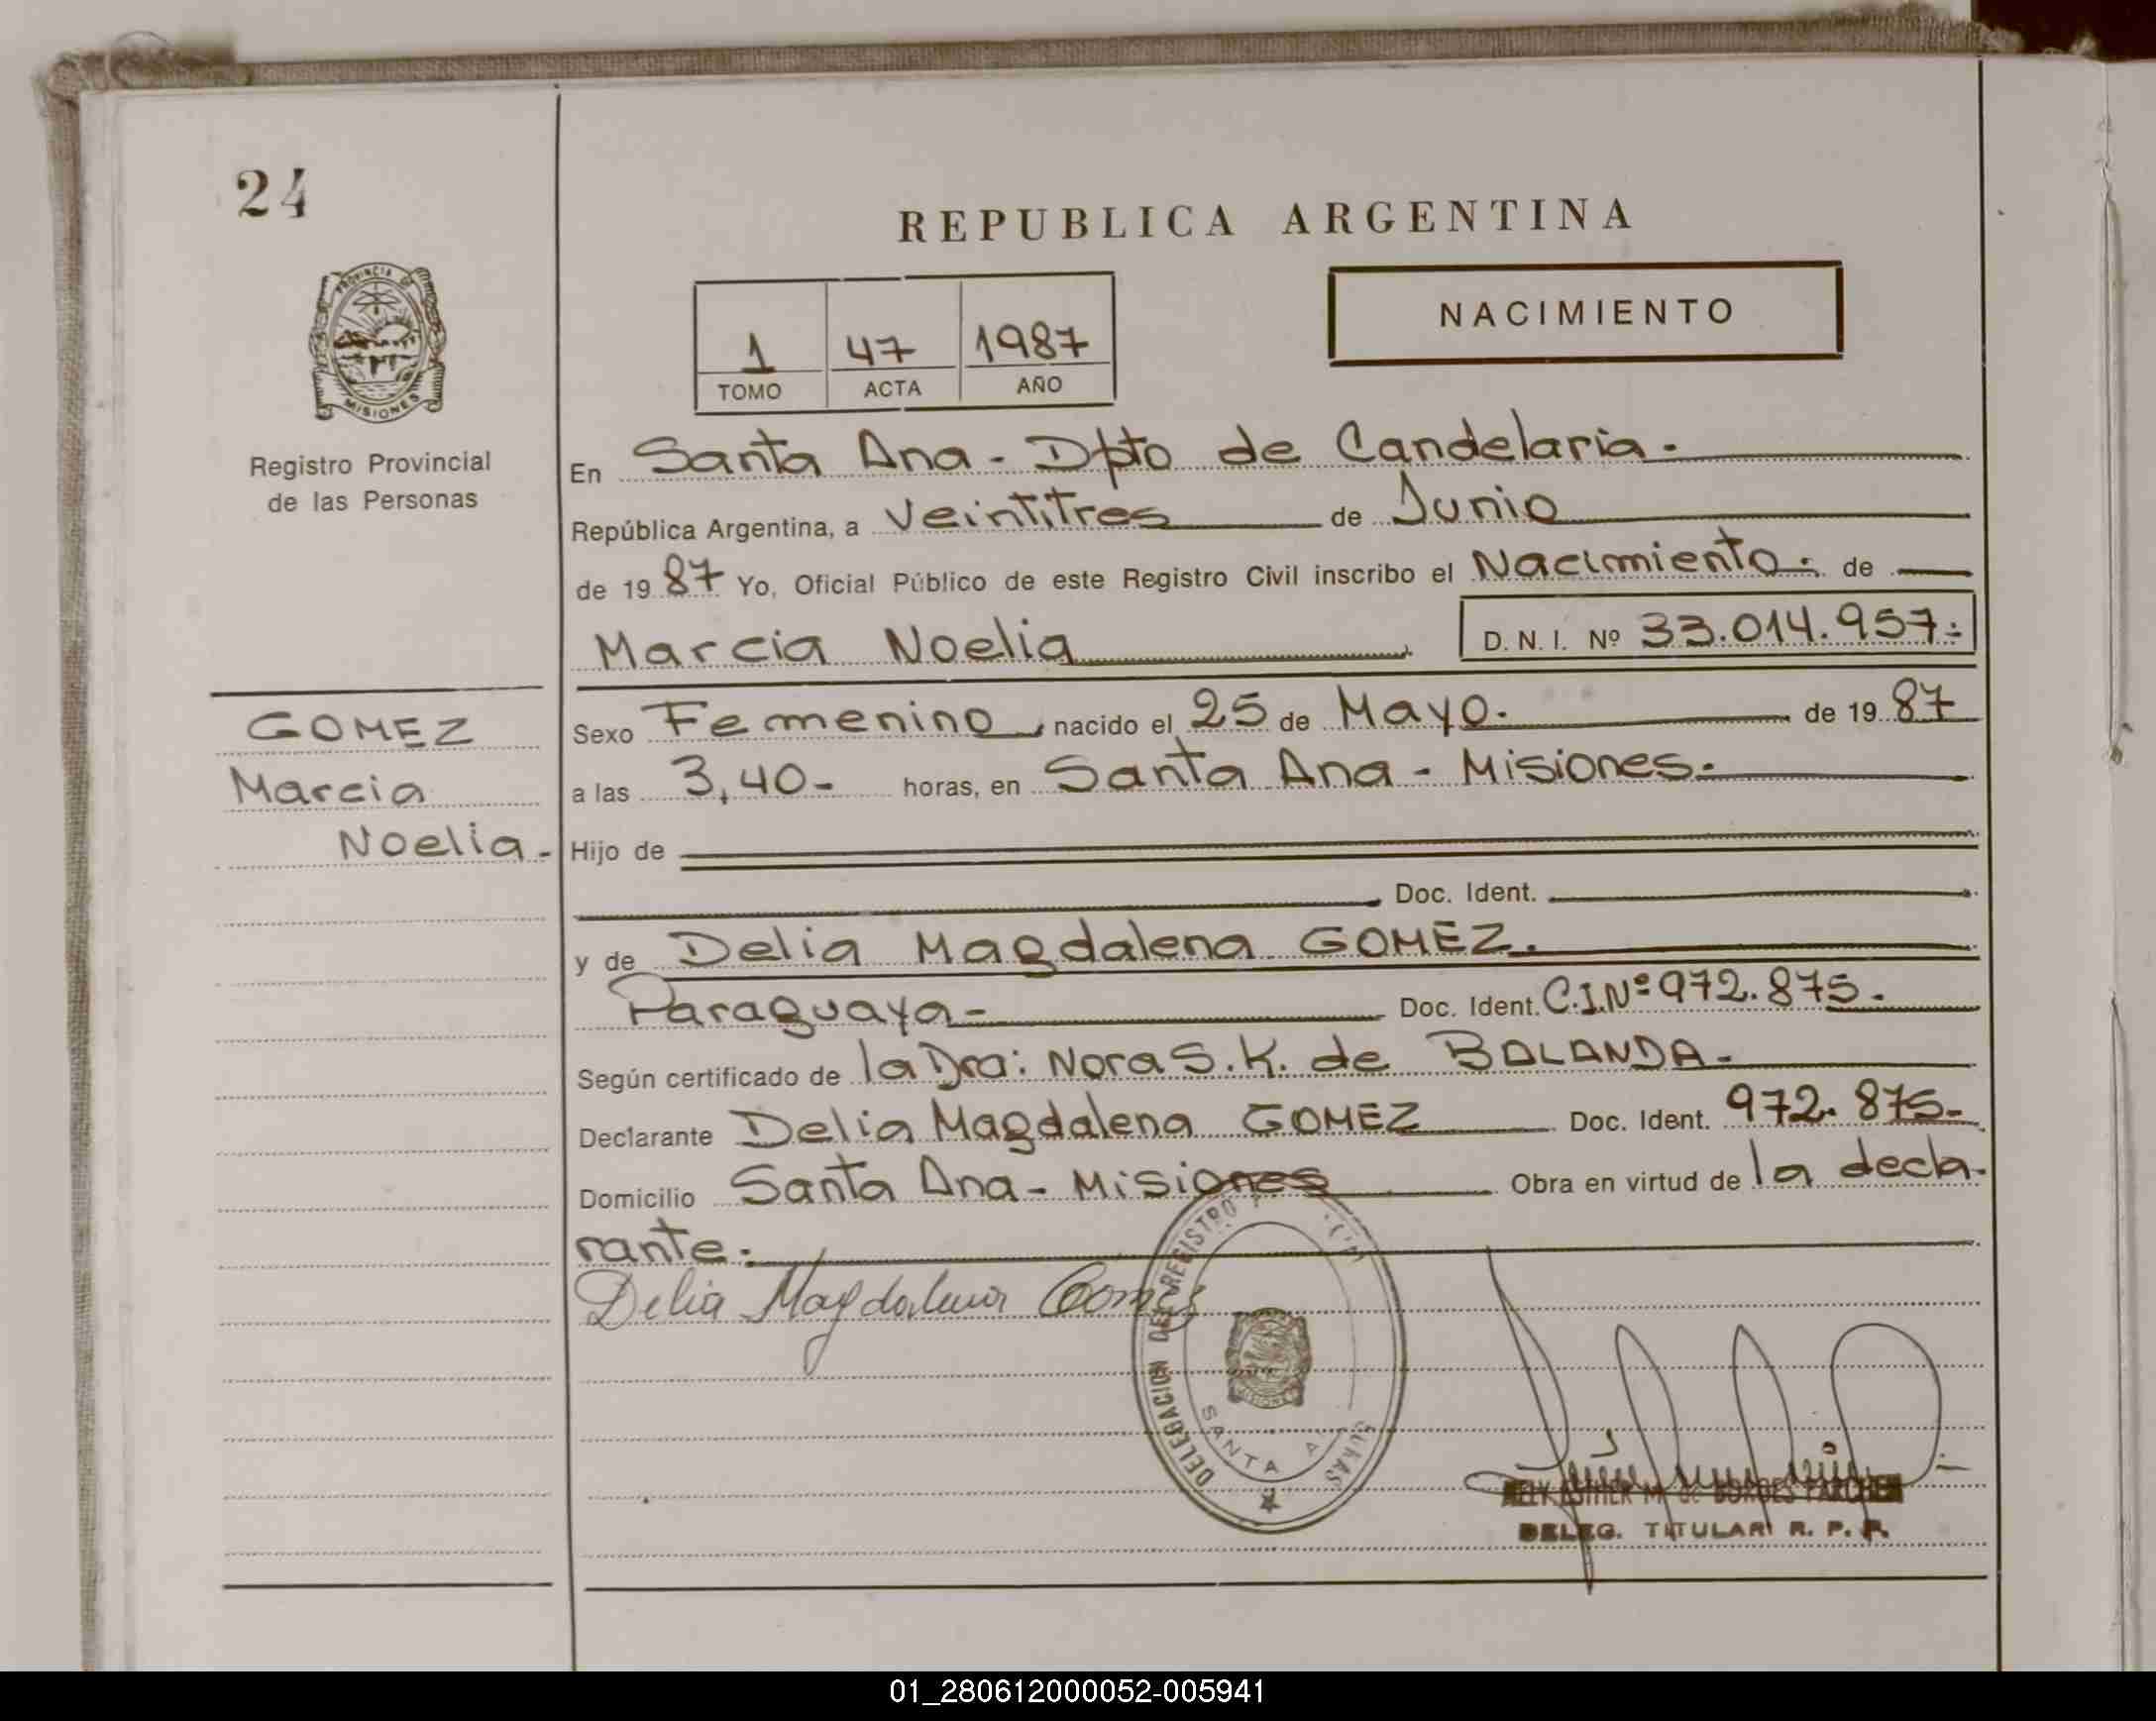 24
REPUBLICA ARGENTINA
NACIMIENTO
1 47 1987
TOMO ACTA AÑO
PROVINCIA DE
MISIONES
Registro Provincial
de las Personas
En Santa Ana - Dpto de Candelaria.
República Argentina, a Veintitres de Junio
de 19 87 Yo, Oficial Público de este Registro Civil inscribo el Nacimiento.- de
Marcia Noelia D. N. I. Nº 33.014.957.-
GOMEZ
Marcia
Noelia.
Sexo Femenino, nacido el 25 de Mayo. de 19 87
a las 3,40- horas, en Santa Ana - Misiones.
Hijo de
Doc. Ident.
y de Delia Magdalena GOMEZ.
Paraguaya- Doc. Ident. C.I.Nº 972.875.
Según certificado de la Dra: Nora S. K. de BALANDA-
Declarante Delia Magdalena GOMEZ Doc. Ident. 972.875-
Domicilio Santa Ana - Misiones Obra en virtud de la decla-
rante.-
Delia Magdalena Gomez
DELEGACION DEL REGISTRO
SANTA
MISIONES
DELEG. TITULAR R. P. P.
01_280612000052-005941